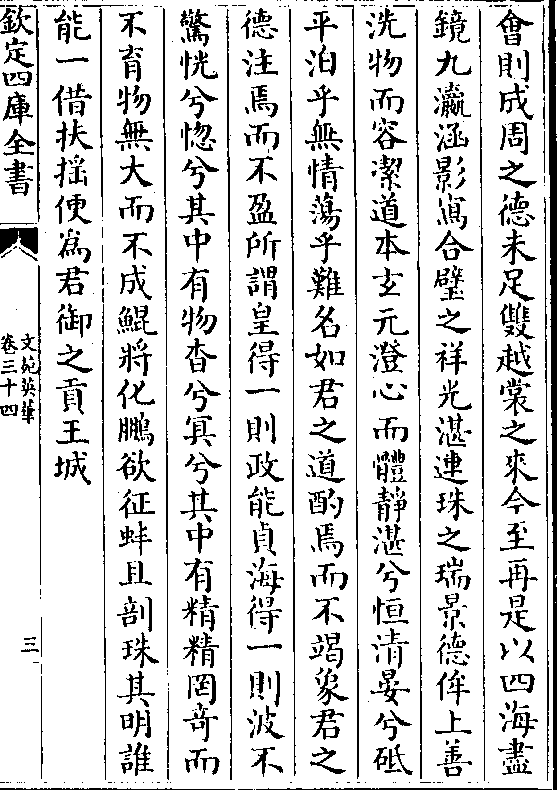 會則成周之德未足雙越裳之來今至再是以四海盡
鏡九瀛涵影寫合璧之祥光湛連珠之瑞景德侔上善
洗物而容潔道本玄元澄心而體靜湛兮恒清晏兮砥
平泊乎無情蕩乎難名如君之道酌焉而不竭象君之
德注焉而不盈所謂皇得一則政能貞海得一則波不
驚恍兮惚兮其中有物杳兮冥兮其中有精精罔竒而
不育物無大而不成鯤將化鵬欲征蚌且剖珠其明誰
能一借扶揺便為君御之貢王城
欽定四庫全書
文苑英華
卷三十四
三